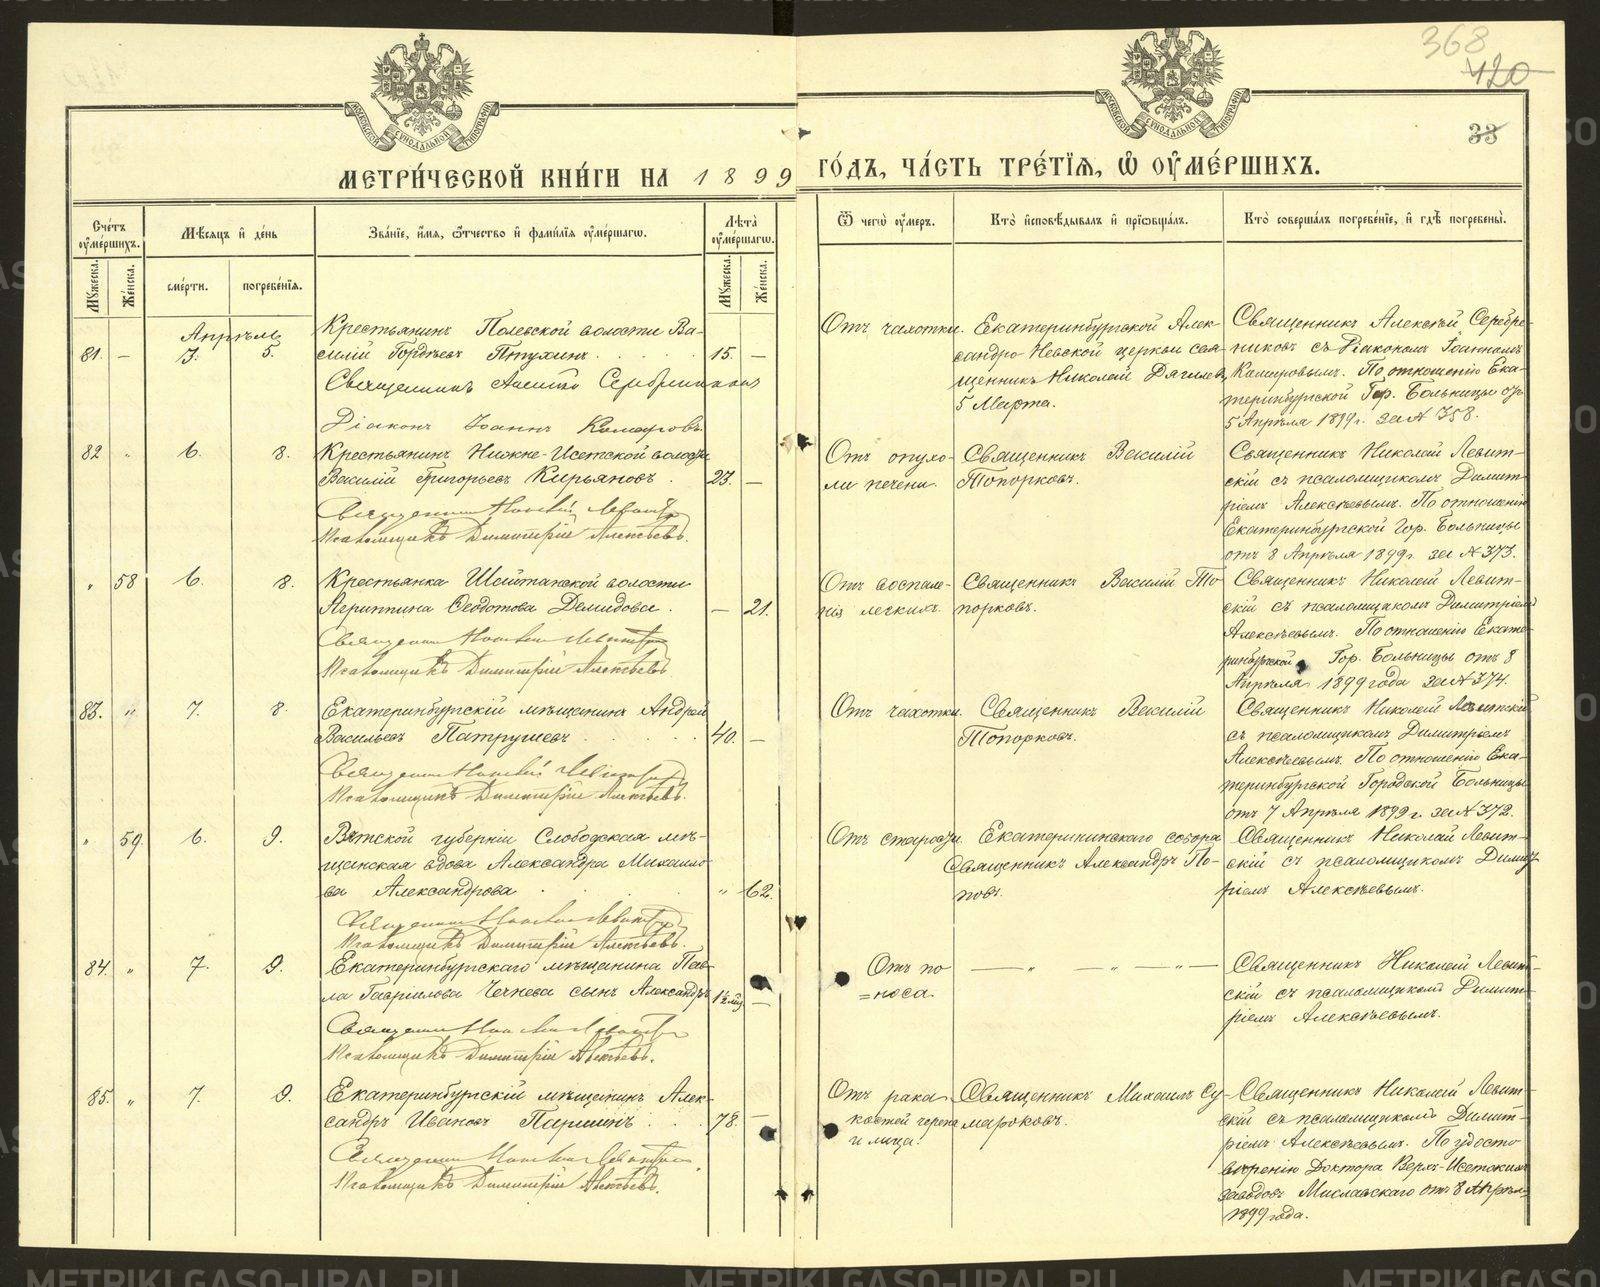 368
420
33
МЕТРИ́ЧЕСКОЙ КНИ́ГИ НА 1899 ГО́ДЪ, ЧА́СТЬ ТРЕ́ТІѦ, Ѡ ОУ҆МЕ́РШИХЪ.
МОСКОВСКОЙ СѴНОДАЛЬНОЙ ТИПОГРАФІИ
МОСКОВСКОЙ СѴНОДАЛЬНОЙ ТИПОГРАФІИ
Сче́тъ оу҆ме́ршихъ.
Мꙋ́жеска.
Же́нска.
Мѣ́сѧцъ и҆ де́нь
сме́рти.
погребе́нїѧ.
Зва́нїе, и҆́мѧ, ѻ҆́тчество и҆ фами́лїѧ оу҆ме́ршагѡ.
Лѣ́та оу҆ме́ршагѡ.
Мꙋ́жеска.
Же́нска.
Ѿ чегѡ̀ оу҆́меръ.
Кто̀ и҆сповѣ́дывалъ и҆ прїѡбща́лъ.
Кто̀ соверша́лъ погребе́нїе, и҆ гдѣ̀ погребены̀.
Апрѣль
81. — 3. 5.
Крестьянинъ Полевской волости Ва-
силій Гордѣевъ Птухинъ.
15. —
Священникъ Алексѣй Серебренниковъ
Діаконъ Іоаннъ Комаровъ.
Отъ чахотки.
Екатеринбургской Алек-
сандро-Невской церкви свя-
щенникъ Николай Дягилевъ,
5 Марта.
Священникъ Алексѣй Серебре-
никовъ съ Діакономъ Іоанномъ
Комаровымъ. По отношенію Ека-
теринбургской Гор. Больницы отъ
5 Апрѣля 1899 г. за № 358.
82 " 6. 8.
Крестьянинъ Нижне-Исетской волости
Василій Григорьевъ Кирьяновъ.
23. —
Священникъ Николай Левитскій
Псаломщикъ Димитрій Алексѣевъ.
Отъ опухо-
ли печени.
Священникъ Василій
Топорковъ.
Священникъ Николай Левит-
скій съ псаломщикомъ Димит-
ріемъ Алексѣевымъ. По отношенію
Екатеринбургской Гор. Больницы
отъ 8 Апрѣля 1899 г. за № 373.
" 58 6. 8.
Крестьянка Шайтанской волости
Агриппина Ѳеодотова Демидова.
— 21.
Священникъ Николай Левитскій
Псаломщикъ Димитрій Алексѣевъ
Отъ воспале-
нія легкихъ.
Священникъ Василій То-
порковъ.
Священникъ Николай Левит-
скій съ псаломщикомъ Димитріемъ
Алексѣевымъ. По отношенію Екате-
ринбургской Гор. Больницы отъ 8
Апрѣля 1899 года за № 374.
83. " 7. 8.
Екатеринбургскій мѣщанинъ Андрей
Васильевъ Патрушевъ
40. —
Священникъ Николай Левитскій
Псаломщикъ Димитрій Алексѣевъ.
Отъ чахотки.
Священникъ Василій
Топорковъ.
Священникъ Николай Левитскій
съ псаломщикомъ Димитріемъ
Алексѣевымъ. По отношенію Ека-
теринбургской Городской Больницы
отъ 7 Апрѣля 1899 г. за № 372.
" 59. 6. 9.
Вятской губерніи Слободская мѣ-
щанская вдова Александра Михаило-
ва Александрова
" 62.
Священникъ Николай Левитскій
Псаломщикъ Димитрій Алексѣевъ.
Отъ старости.
Екатерининскаго собора
Священникъ Александръ По-
повъ.
Священникъ Николай Левит-
скій съ псаломщикомъ Димит-
ріемъ Алексѣевымъ.
84. " 7. 9.
Екатеринбургскаго мѣщанина Пав-
ла Гавріилова Чечнева сынъ Александръ
1½ мѣс —
Священникъ Николай Левитскій
Псаломщикъ Димитрій Алексѣевъ.
Отъ по
=носа.
— " — " — " —
Священникъ Николай Левит-
скій съ псаломщикомъ Димит-
ріемъ Алексѣевымъ.
85. " 7. 9.
Екатеринбургскій мѣщанинъ Алек-
сандръ Ивановъ Паршинъ.
78. —
Священникъ Николай Левитскій
Псаломщикъ Димитрій Алексѣевъ.
Отъ рака
костей черепа
и лица.
Священникъ Михаилъ Су-
мароковъ.
Священникъ Николай Левит-
скій съ псаломщикомъ Димит-
ріемъ Алексѣевымъ. По удосто
вѣренію Доктора Верхъ-Исетскихъ
заводовъ Миславскаго отъ 8 Апрѣля
1899 года.
METRIKI.GASO-URAL.RU
METRIKI.GASO-URAL.RU
METRIKI.GASO-URAL.RU